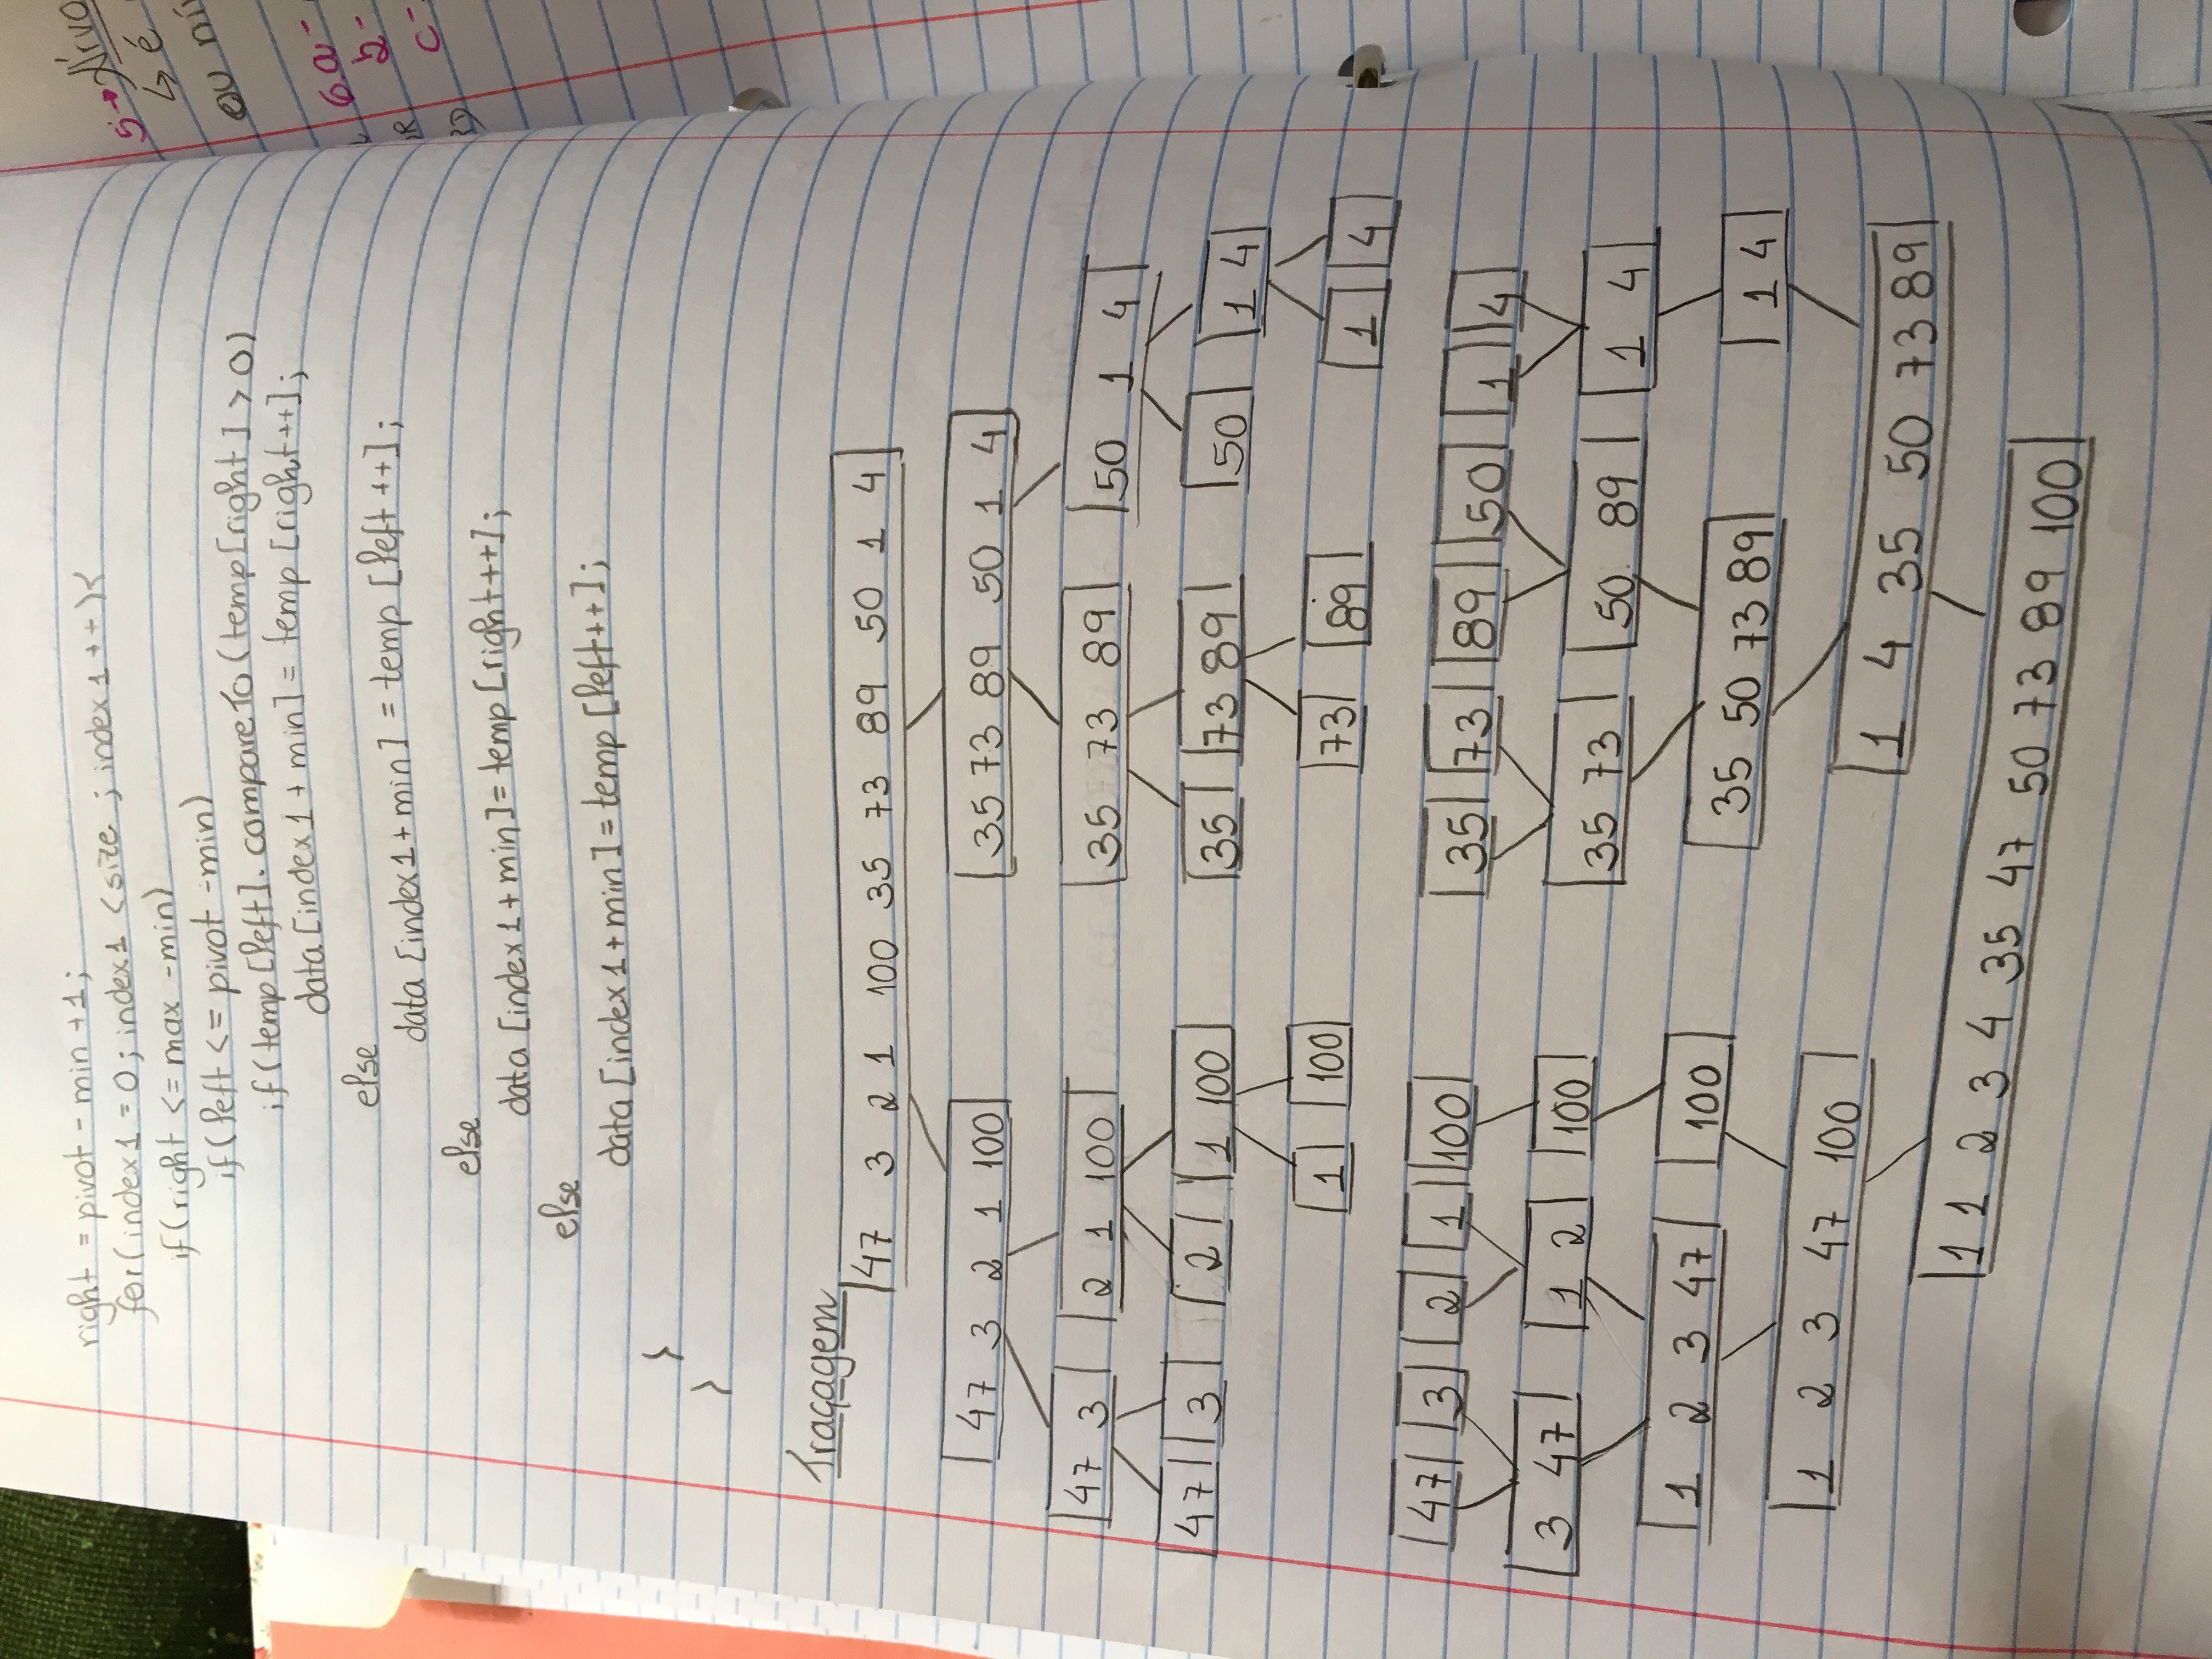 right = pivot - min + 1;
for(index1 = 0; index1 < size ; index1++){
if(right <= max - min)
if(left <= pivot - min)
if(temp[left]. compareTo (temp[right] > 0)
data [index1 + min] = temp [right++];
else
data [index1 + min] = temp [left ++];
else
data [index1 + min] = temp [right++];
else
data [index1 + min] = temp [left++];
}
}
Traçagem
47 3 2 1 100 35 73 89 50 1 4
47 3 2 1 100 35 73 89 50 1 4
47 3 2 1 100 35 73 89 50 1 4
47 3 2 1 100 35 73 89 50 1 4
1 100 73 89 1 4
47 3 2 1 100 35 73 89 50 1 4
3 47 1 2 100 35 73 50 89 1 4
1 2 3 47 100 35 50 73 89 1 4
1 2 3 47 100 1 4 35 50 73 89
1 1 2 3 4 35 47 50 73 89 100
5→
↳ é
ou
6.a-
b-
c-